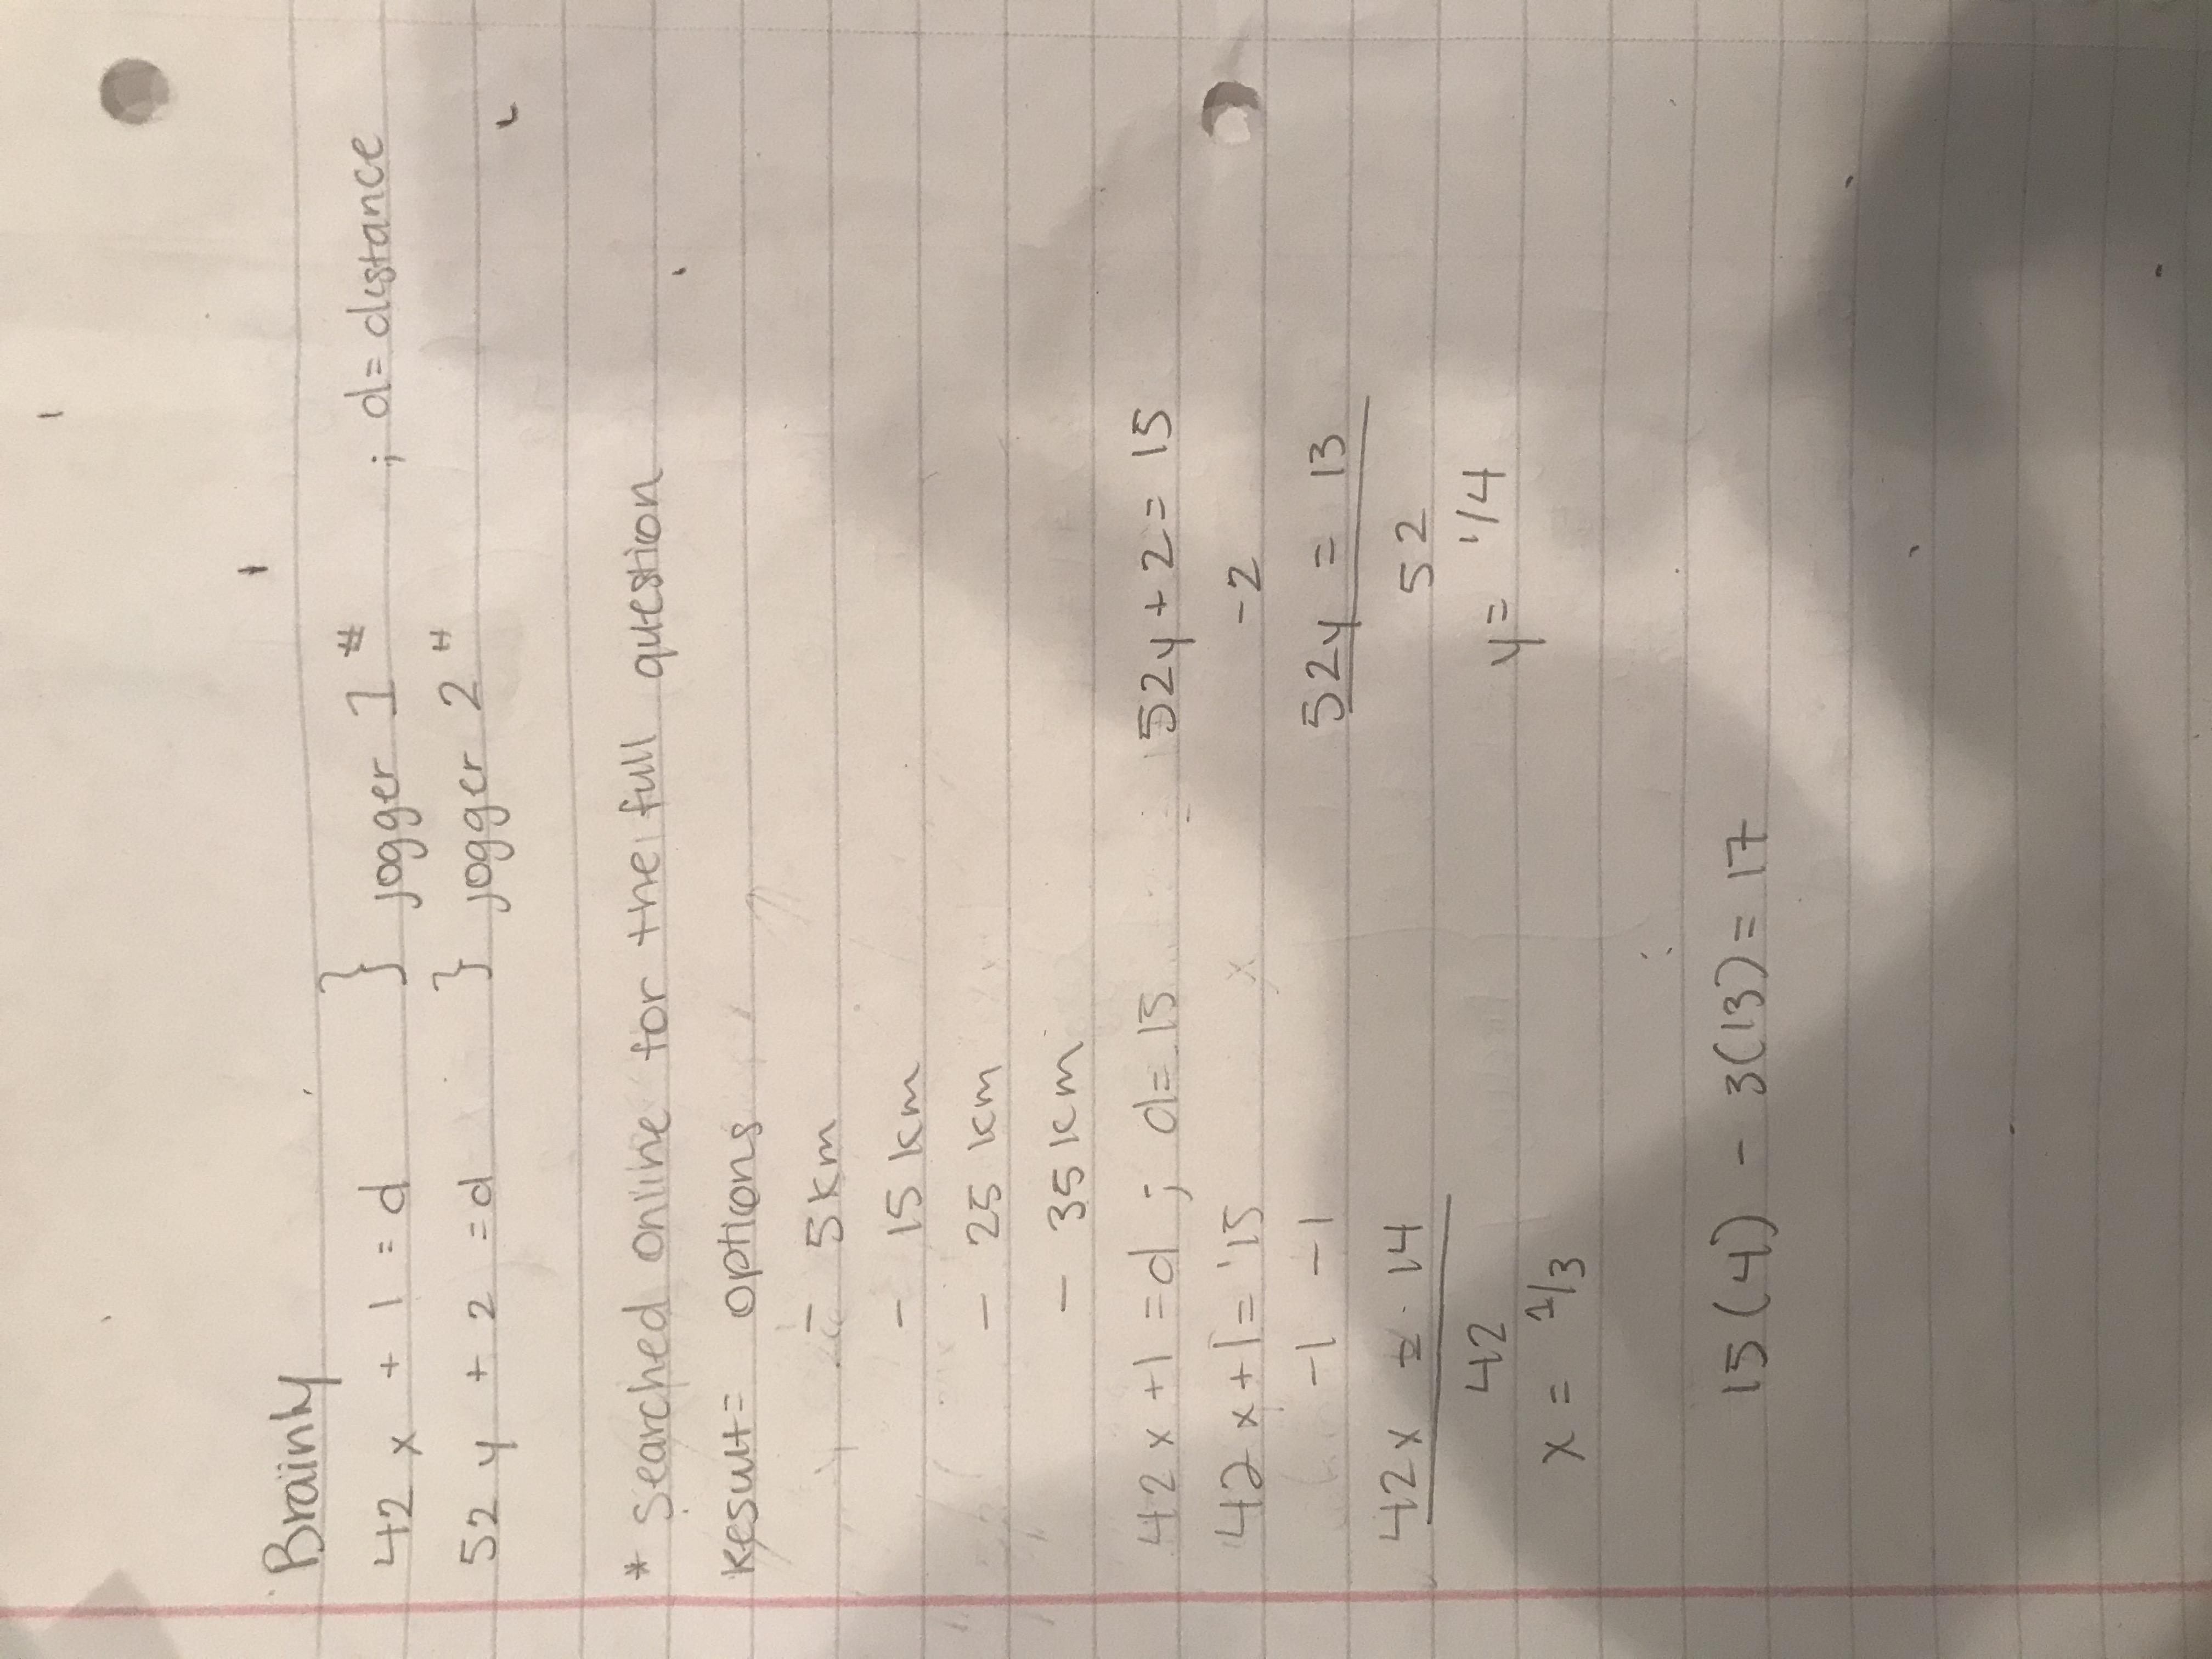 Brainly
42x + 1 = d } jogger 1 # ; d = distance
52y + 2 = d } jogger 2 #
* Searched online for the full question
Result = options
- 5km
- 15km
- 25 km
- 35 km
42x + 1 = d ; d = 15
42x + 1 = 15
-1 -1
42x = 14
42
x = 1/3
52y + 2 = 15
-2
52y = 13
52
y = 1/4
15(4) - 3(13) = 17